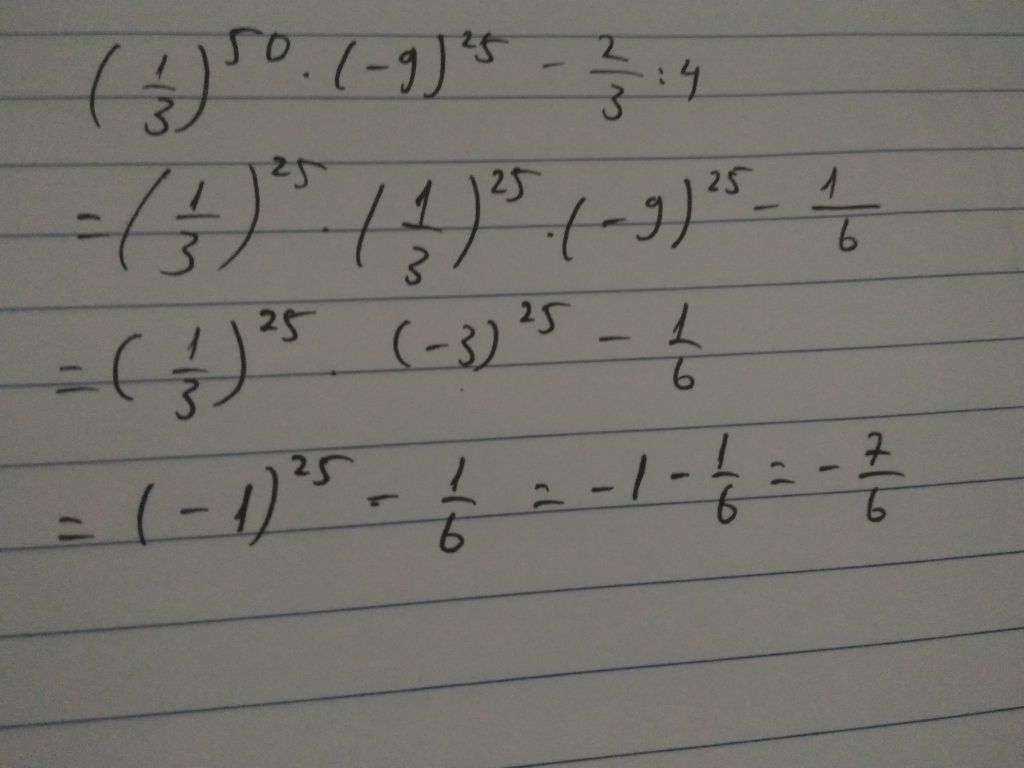 (1/3)^50 . (-9)^25 - 2/3 : 4
= (1/3)^25 . (1/3)^25 . (-9)^25 - 1/6
= (1/3)^25 . (-3)^25 - 1/6
= (-1)^25 - 1/6 = -1 - 1/6 = - 7/6